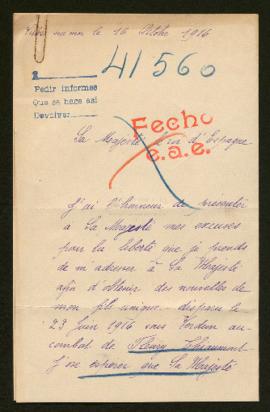 le 16 Octobre 1916
41560
Pedir informes
Que se hace así
Devolver
Fecho
e.a.e.
Sa Majesté le roi d'Espagne
J'ai l'honneur de présenter
à Sa Majesté mes excuses
pour la liberté que je prends
de m'adresser à Sa Majesté
afin d'obtenir des nouvelles de
mon fils unique disparu le
23 Juin 1916 sous Verdun au
combat de Fleury
j'ose espérer que Sa Majesté